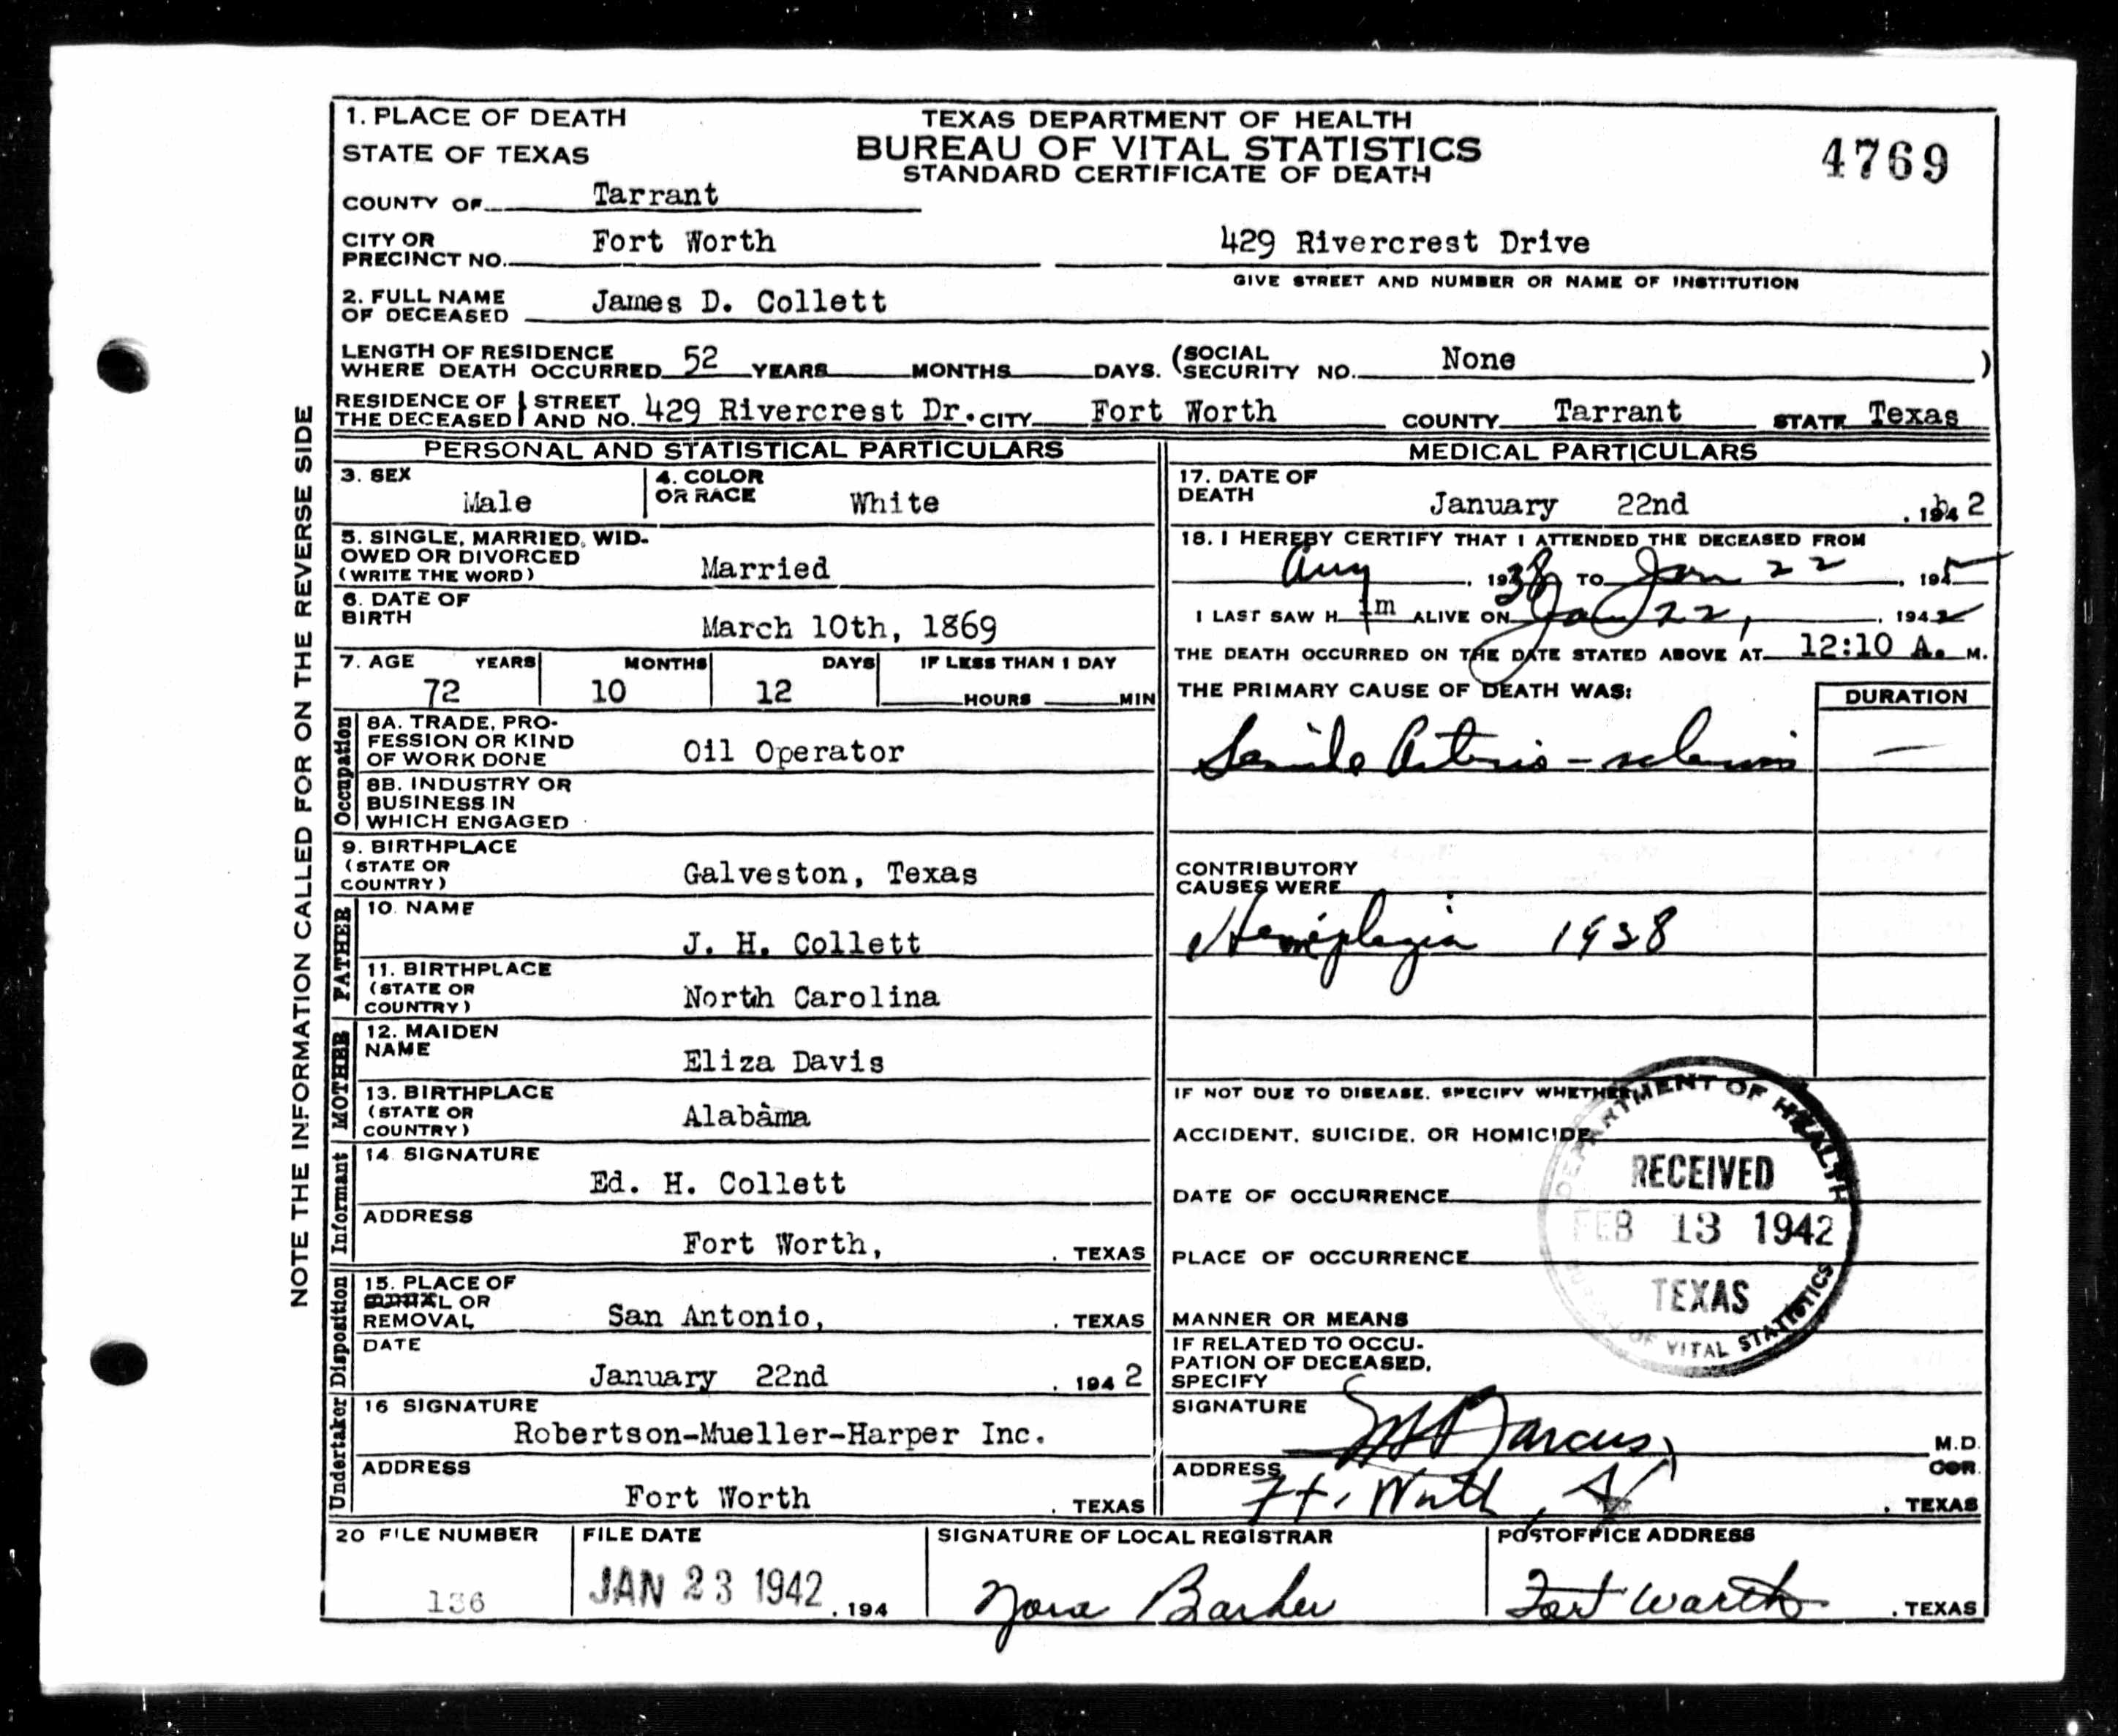 1. PLACE OF DEATH
STATE OF TEXAS
TEXAS DEPARTMENT OF HEALTH
BUREAU OF VITAL STATISTICS
STANDARD CERTIFICATE OF DEATH
4769
COUNTY OF Tarrant
CITY OR PRECINCT NO. Fort Worth
429 Rivercrest Drive
GIVE STREET AND NUMBER OR NAME OF INSTITUTION
2. FULL NAME OF DECEASED James D. Collett
LENGTH OF RESIDENCE WHERE DEATH OCCURRED 52 YEARS MONTHS DAYS. (SOCIAL SECURITY NO. None )
RESIDENCE OF THE DECEASED STREET AND NO. 429 Rivercrest Dr. CITY Fort Worth COUNTY Tarrant STATE Texas
NOTE THE INFORMATION CALLED FOR ON THE REVERSE SIDE
PERSONAL AND STATISTICAL PARTICULARS
3. SEX Male
4. COLOR OR RACE White
5. SINGLE, MARRIED, WIDOWED OR DIVORCED (WRITE THE WORD) Married
6. DATE OF BIRTH March 10th, 1869
7. AGE YEARS MONTHS DAYS IF LESS THAN 1 DAY
72 10 12 HOURS MIN
Occupation
8A. TRADE, PROFESSION OR KIND OF WORK DONE Oil Operator
8B. INDUSTRY OR BUSINESS IN WHICH ENGAGED
9. BIRTHPLACE (STATE OR COUNTRY) Galveston, Texas
FATHER
10. NAME J. H. Collett
11. BIRTHPLACE (STATE OR COUNTRY) North Carolina
MOTHER
12. MAIDEN NAME Eliza Davis
13. BIRTHPLACE (STATE OR COUNTRY) Alabama
Informant
14. SIGNATURE Ed. H. Collett
ADDRESS Fort Worth, . TEXAS
Disposition
15. PLACE OF BURIAL OR REMOVAL San Antonio, . TEXAS
DATE January 22nd . 194 2
Undertaker
16 SIGNATURE Robertson-Mueller-Harper Inc.
ADDRESS Fort Worth . TEXAS
MEDICAL PARTICULARS
17. DATE OF DEATH January 22nd , 194 2
18. I HEREBY CERTIFY THAT I ATTENDED THE DECEASED FROM
Aug , 1938 TO Jan 22 , 19
I LAST SAW H im ALIVE ON Jan 22, , 1942
THE DEATH OCCURRED ON THE DATE STATED ABOVE AT 12:10 A. M.
THE PRIMARY CAUSE OF DEATH WAS: DURATION
Senile Arterio-sclerosis —
CONTRIBUTORY CAUSES WERE
Hemiplegia 1938
IF NOT DUE TO DISEASE, SPECIFY WHETHER
ACCIDENT, SUICIDE, OR HOMICIDE
DATE OF OCCURRENCE
PLACE OF OCCURRENCE
MANNER OR MEANS
IF RELATED TO OCCUPATION OF DECEASED, SPECIFY
DEPARTMENT OF HEALTH
RECEIVED
FEB 13 1942
TEXAS
BUREAU OF VITAL STATISTICS
SIGNATURE Marcus M.D.
COR.
ADDRESS Ft. Worth, . TEXAS
20 FILE NUMBER 136
FILE DATE JAN 23 1942 . 194
SIGNATURE OF LOCAL REGISTRAR Nora Barker
POSTOFFICE ADDRESS Fort Worth . TEXAS